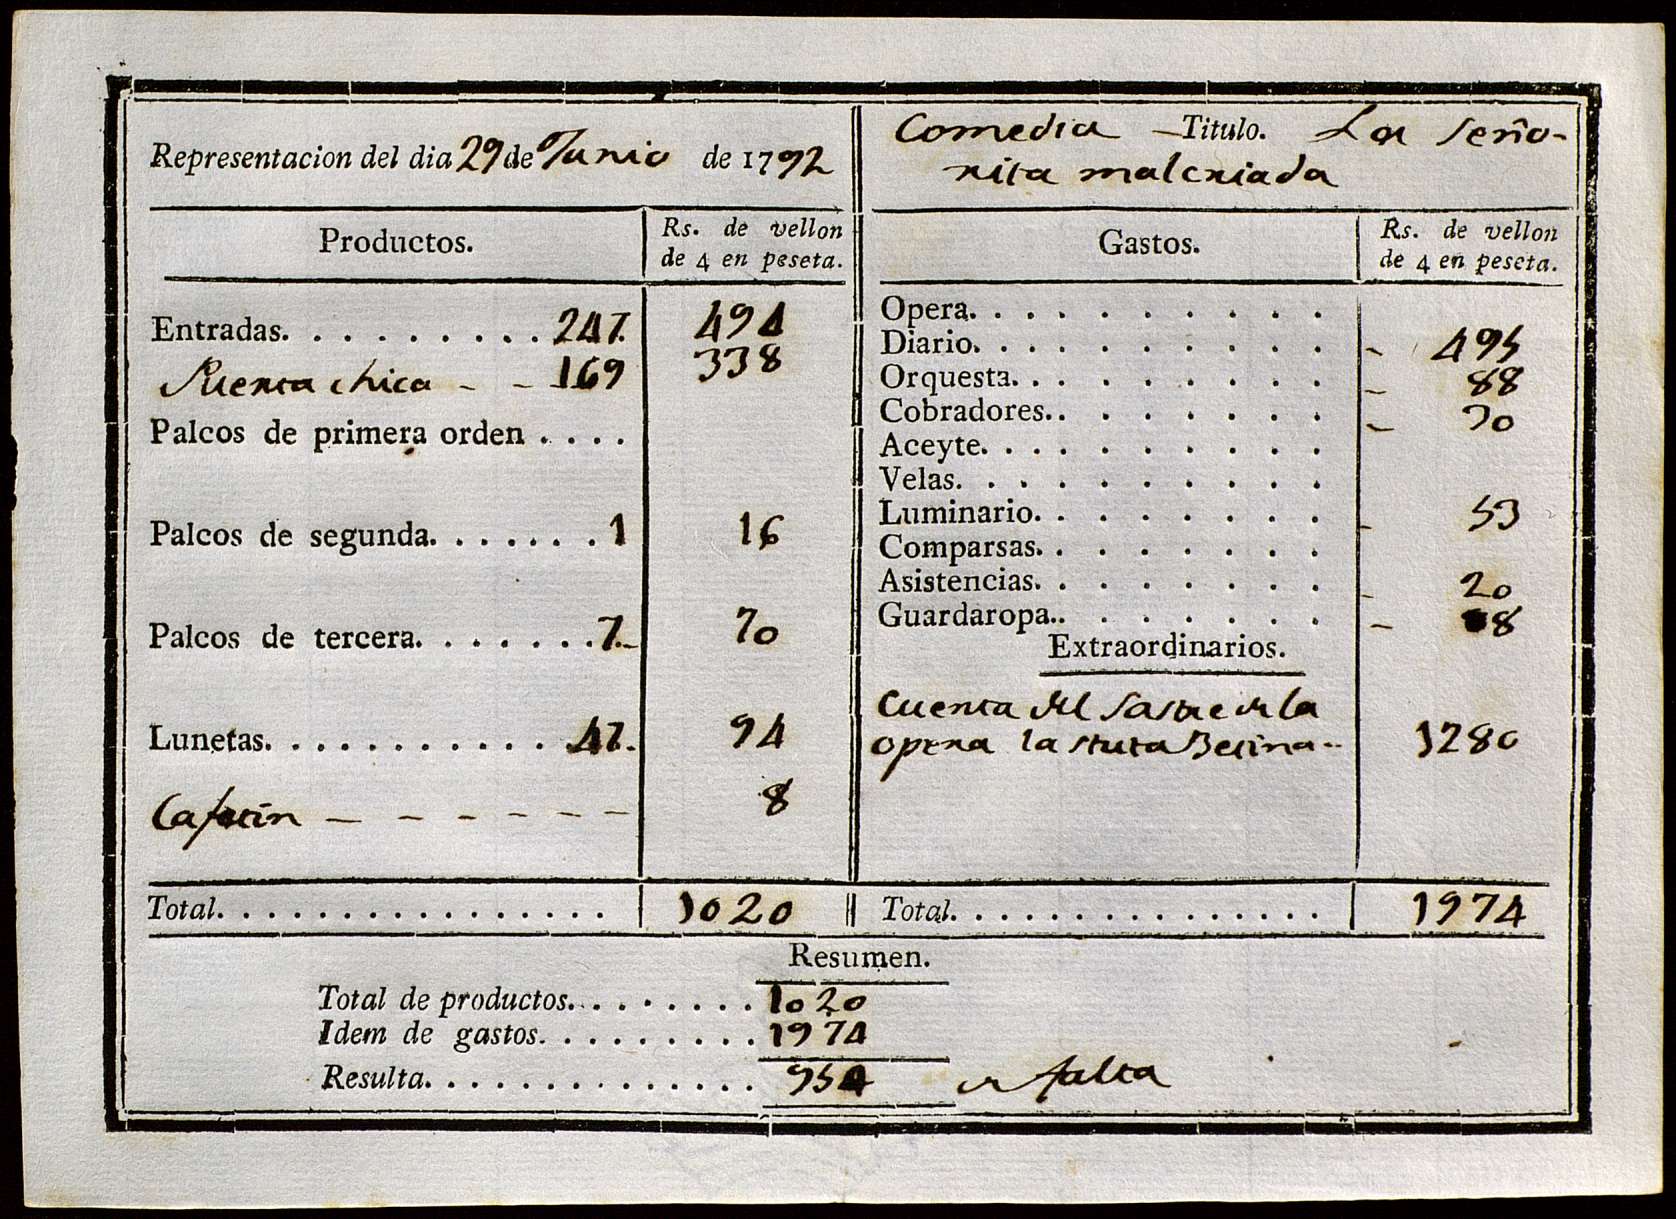 Representacion del dia 29 de Junio de 1792
Comedia - Titulo. La Seño-
rita malcriada
Productos.
Rs. de vellon
de 4 en peseta.
Entradas. . . . . . . . . 247. 494
Puerta chica - - 169 338
Palcos de primera orden . . . .
Palcos de segunda. . . . . . . 1 16
Palcos de tercera. . . . . . . 7.- 70
Lunetas. . . . . . . . . . . . 47. 94
Cafetin - - - - - - - 8
Total. . . . . . . . . . . . . . . . 1020
Gastos.
Rs. de vellon
de 4 en peseta.
Opera. . . . . . . . . .
Diario. . . . . . . . . . - 495
Orquesta. . . . . . . . . - 88
Cobradores. . . . . . . . - 30
Aceyte. . . . . . . . . .
Velas. . . . . . . . . .
Luminario. . . . . . . . - 53
Comparsas. . . . . . . .
Asistencias. . . . . . . . - 20
Guardaropa. . . . . . . . - 8
Extraordinarios.
Cuenta del Sastre de la
opera la stuta Becina - - 1280
Total. . . . . . . . . . . . . . . . 1974
Resumen.
Total de productos. . . . . . . . . 1020
Idem de gastos. . . . . . . . . . 1974
Resulta. . . . . . . . . . . . . . 954 en falta